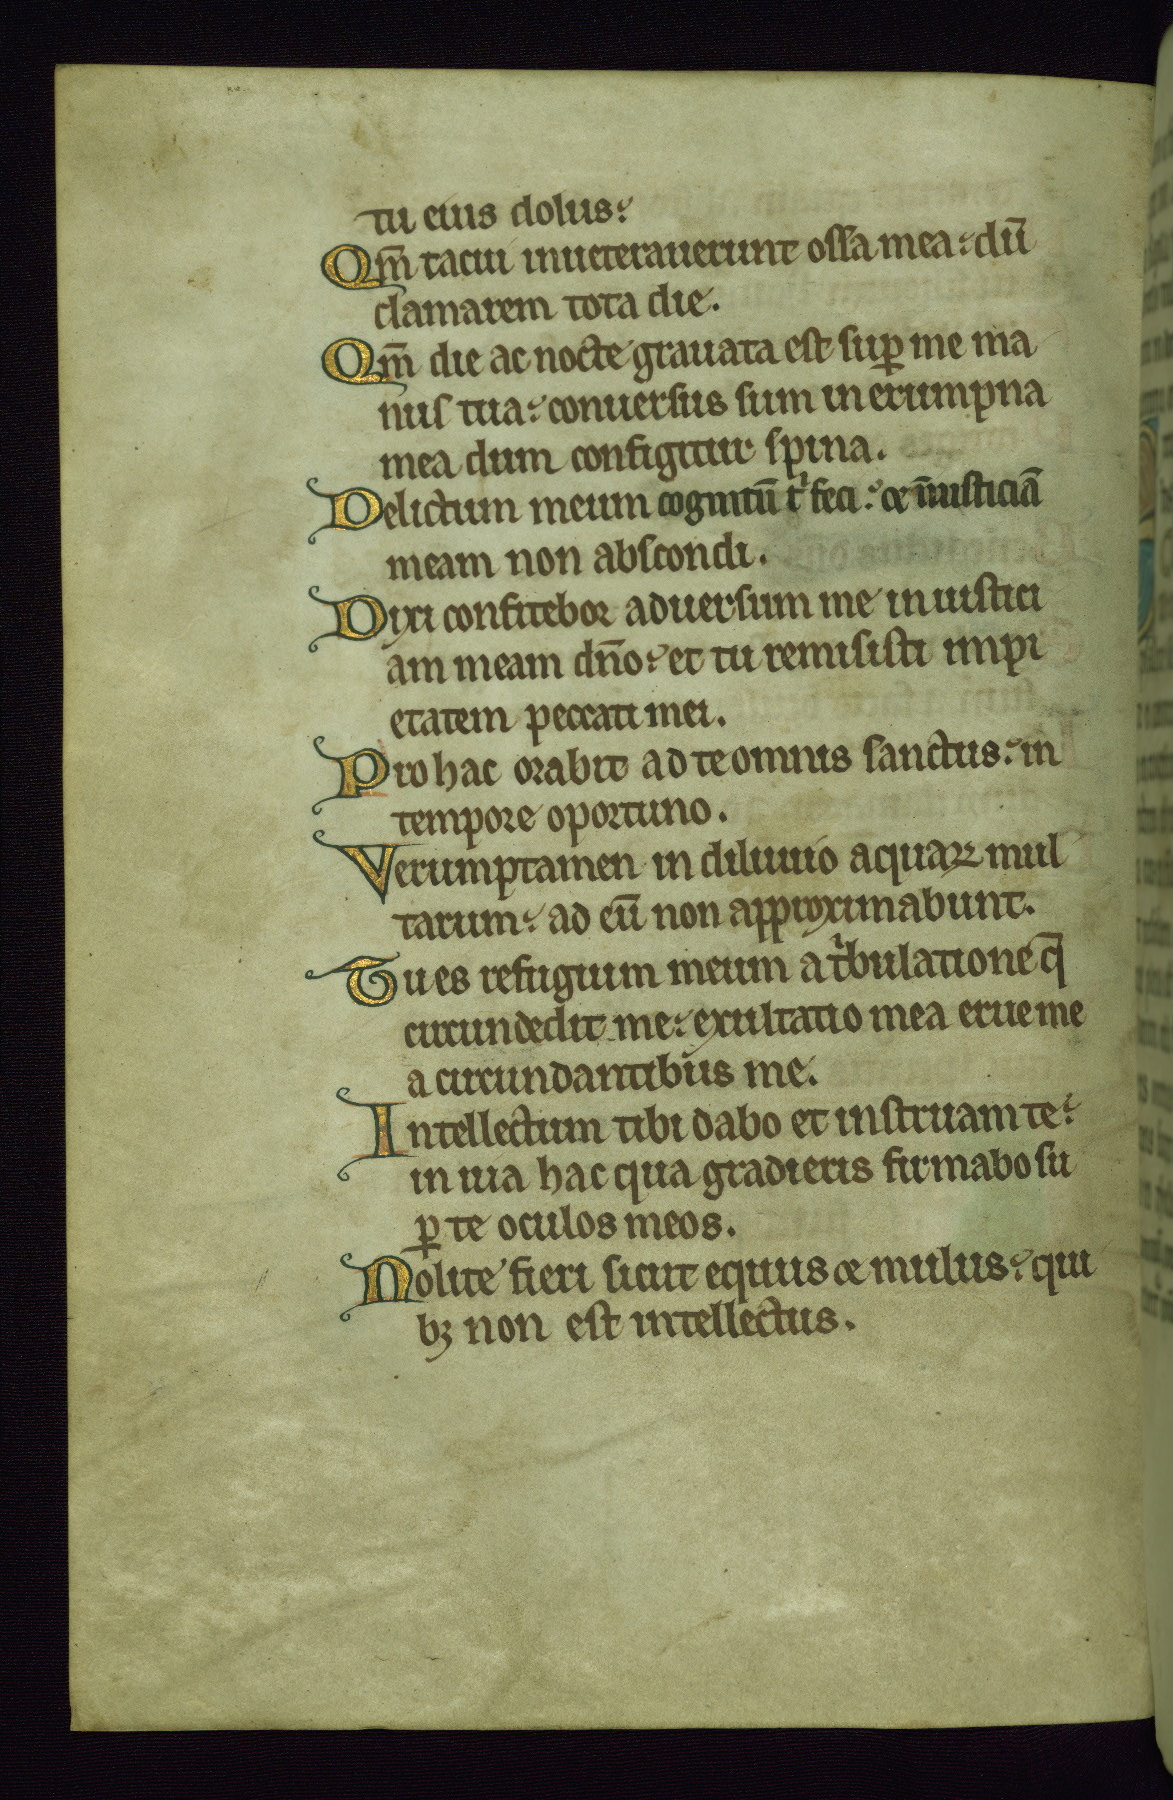 tu eius dolus.
Qm̄ tacui inueterauerunt ossa mea: dū
clamarem tota die.
Qm̄ die ac nocte grauata est suꝑ me ma
nus tua: conuersus sum in erumpna
mea dum configitur spina.
Delictum meum cognitū tⁱ feci: & iniusticiā
meam non abscondi.
Dixi confitebor aduersum me iniustici
am meam dn̄o: et tu remisisti impi
etatem peccati mei.
Pro hac orabit ad te omnis sanctus: in
tempore oportuno.
Verumptamen in diluuio aquaꝝ mul
tarum: ad eū non approximabunt.
Tu es refugium meum a tⁱbulatione q̄
circundedit me: exultatio mea erue me
a circundantibus me.
Intellectum tibi dabo et instruam te:
in uia hac qua gradieris firmabo su
ꝑ te oculos meos.
Nolite fieri sicut equus & mulus: qui
bꝫ non est intellectus.